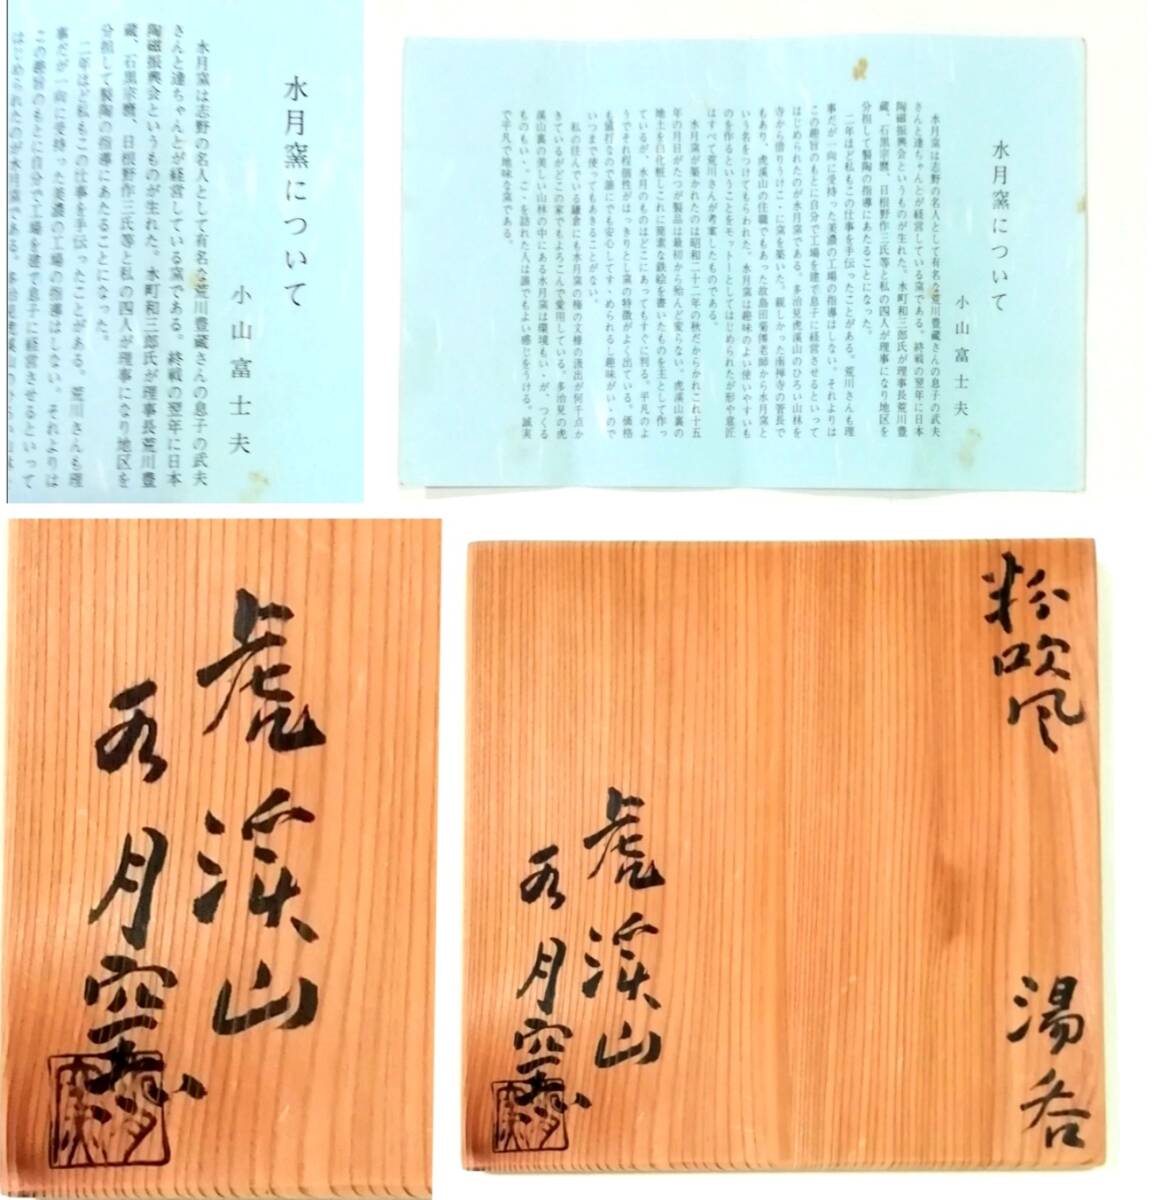 水月窯について
小山富士夫
水月窯は志野の名人として有名な荒川豊蔵さんの息子の武夫
さんと達ちゃんとが経営している窯である。終戦の翌年に日本
陶磁振興会というものが生れた。水町和三郎氏が理事長荒川豊
蔵、石黒宗麿、日根野作三氏等と私の四人が理事になり地区を
分担して製陶の指導にあたることになった。
二年ほど私もこの仕事を手伝ったことがある。荒川さんも理
事だが一向に受持った美濃の工場の指導はしない。それよりは
この趣旨のもとに自分で工場を建て息子に経営させるといって
はじめられたのが水月窯である。多治見虎渓山のひろい山林
水月窯について
小山富士夫
水月窯は志野の名人として有名な荒川豊蔵さんの息子の武夫
さんと達ちゃんとが経営している窯である。終戦の翌年に日本
陶磁振興会というものが生れた。水町和三郎氏が理事長荒川豊
蔵、石黒宗麿、日根野作三氏等と私の四人が理事になり地区を
分担して製陶の指導にあたることになった。
二年ほど私もこの仕事を手伝ったことがある。荒川さんも理
事だが一向に受持った美濃の工場の指導はしない。それよりは
この趣旨のもとに自分で工場を建て息子に経営させるといって
はじめられたのが水月窯である。多治見虎渓山のひろい山林を
寺から借りうけこゝに窯を築いた。親しかった南禅寺の管長で
もあり、虎渓山の住職でもあった故島田菊僊老師から水月窯と
いう名をつけてもらわれた。水月窯は趣味のよい使いやすいも
のを作るということをモットーとしてはじめられたが形や意匠
はすべて荒川さんが考案したものである。
水月窯が築かれたのは昭和二十二年の秋だからかれこれ十五
年の月日がたつが製品は最初から殆んど変らない。虎渓山裏の
地土を白化粧しこれに簡素な鉄絵を書いたものを主として作っ
ているが、水月のものはどこにあってもすぐに判る。平凡のよ
うでそれ程個性がはっきりとし窯の特徴がよく出ている。価格
も値打なので誰にでも安心してすゝめられるし趣味がいゝので
いつまで使ってもあきることがない。
私の住んでいる鎌倉にも水月窯の梅の文様の汲出が何千点か
きているがどこの家でもよろこんで愛用している。多治見の虎
渓山裏の美しい山林の中にある水月窯は環境もいゝが、つくる
ものもいゝ。こゝを訪れた人は誰でもよい感じをうける。誠実
で平凡で地味な窯である。
虎渓山
水月窯
粉吹風
湯呑
虎渓山
水月窯